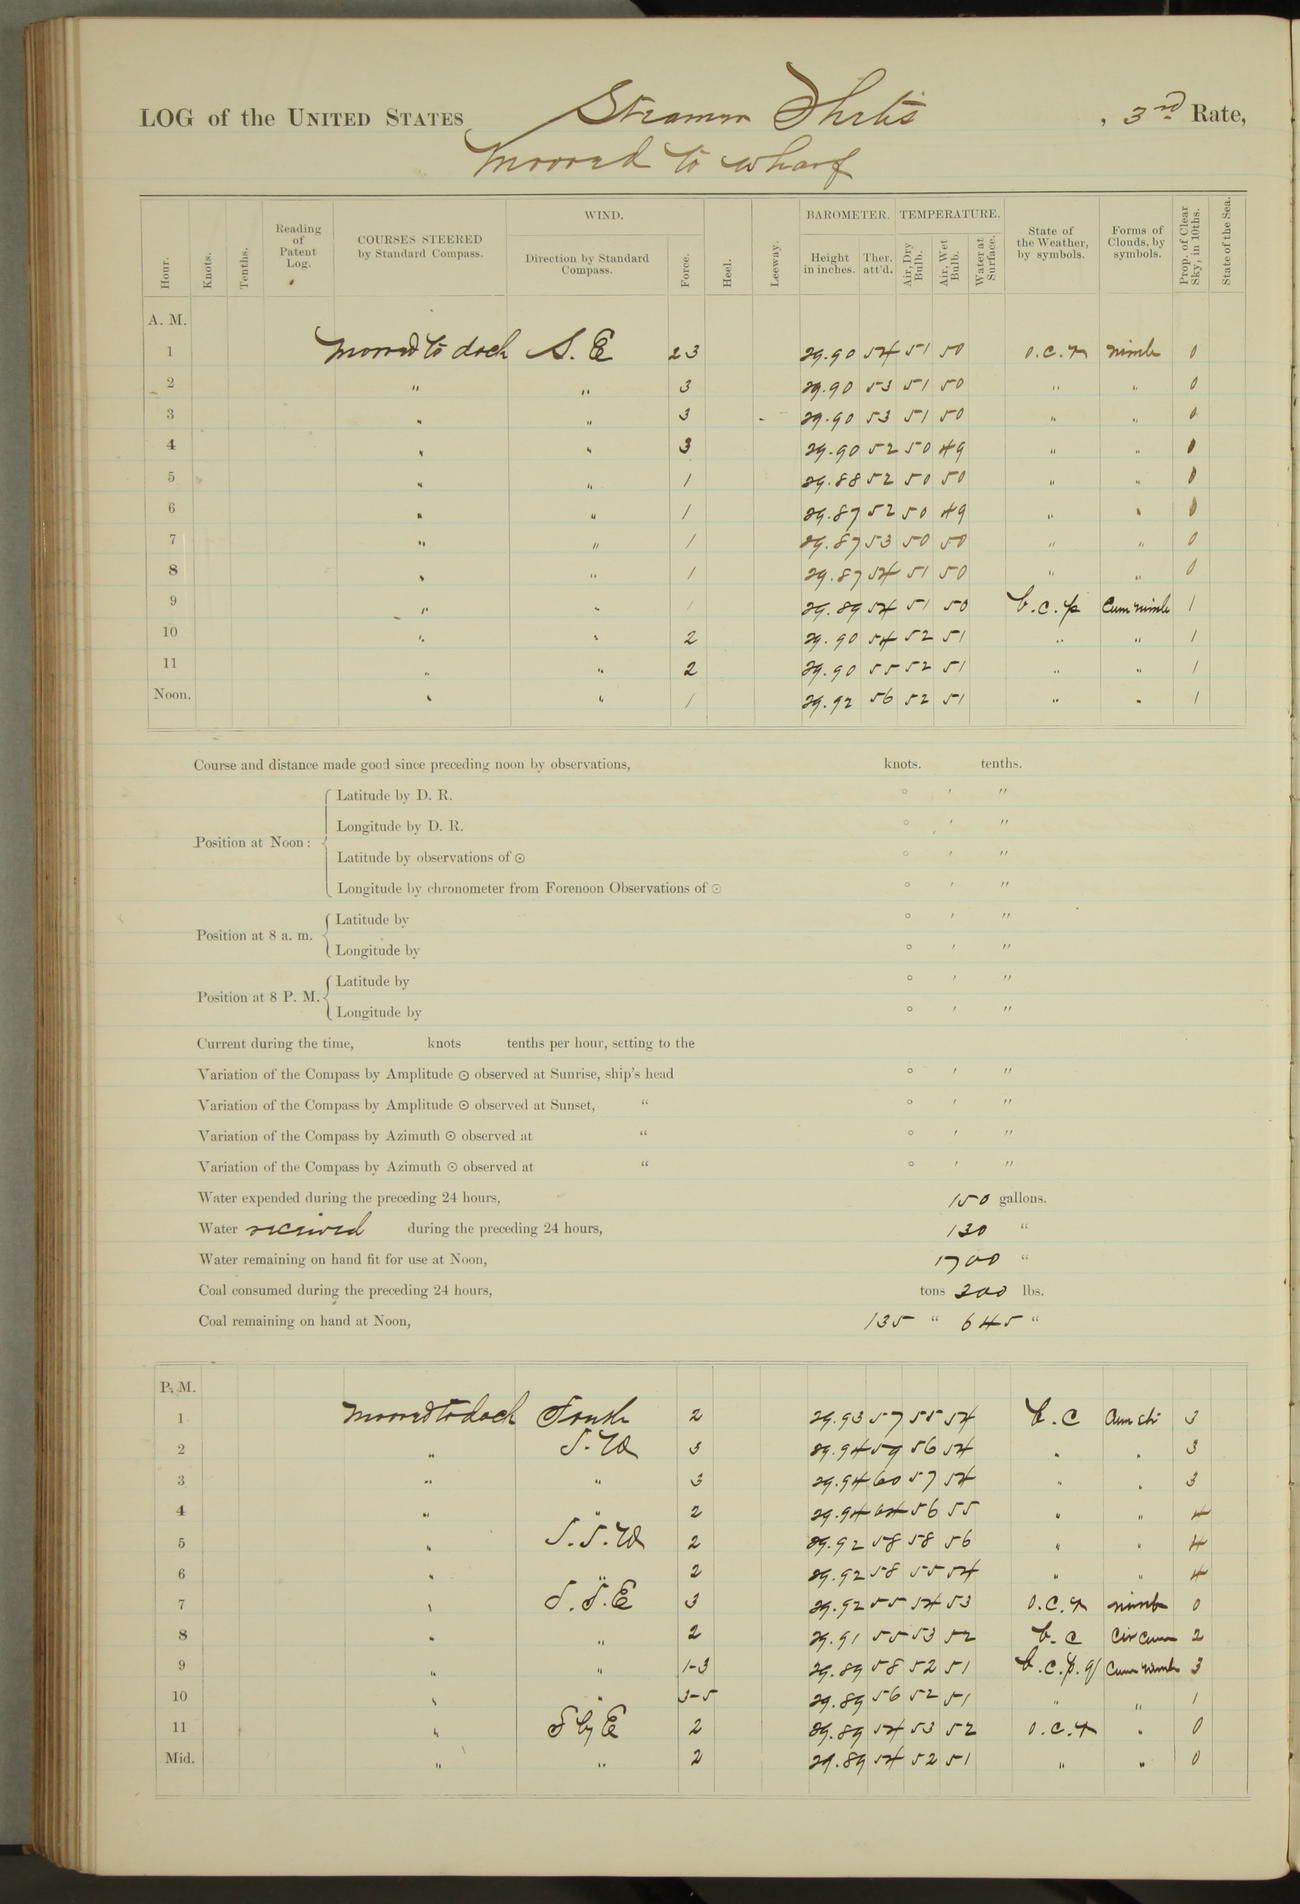 LOG of the UNITED STATES Steamer Thetis, 3rd Rate,
Moored to wharf
Hour. Knots. Tenths. Reading of Patent Log. COURSES STEERED by Standard Compass. WIND. Direction by Standard Compass. Force. Heel. Leeway. BAROMETER. Height in inches. Ther. att'd. TEMPERATURE. Air, Dry Bulb. Air, Wet Bulb. Water at Surface. State of the Weather, by symbols. Forms of Clouds, by symbols. Prop. of Clear Sky, in 10ths. State of the Sea.
A. M.
1 Moored to dock S. E 2 3 29.90 54 51 50 o.c.r nimb 0
2 " " 3 29.90 53 51 50 " " 0
3 " " 3 29.90 53 51 50 " " 0
4 " " 3 29.90 52 50 49 " " 0
5 " " 1 29.88 52 50 50 " " 0
6 " " 1 29.87 52 50 49 " " 0
7 " " 1 29.87 53 50 50 " " 0
8 " " 1 29.87 54 51 50 " " 0
9 " " 1 29.89 54 51 50 b.c.p Cum nimb 1
10 " " 2 29.90 54 52 51 " " 1
11 " " 2 29.90 55 52 51 " " 1
Noon. " " 1 29.92 56 52 51 " " 1
Course and distance made good since preceding noon by observations, knots. tenths.
Position at Noon: Latitude by D. R. ° ′ ″
Longitude by D. R. ° ′ ″
Latitude by observations of ☉ ° ′ ″
Longitude by chronometer from Forenoon Observations of ☉ ° ′ ″
Position at 8 a. m. Latitude by ° ′ ″
Longitude by ° ′ ″
Position at 8 P. M. Latitude by ° ′ ″
Longitude by ° ′ ″
Current during the time, knots tenths per hour, setting to the
Variation of the Compass by Amplitude ☉ observed at Sunrise, ship's head ° ′ ″
Variation of the Compass by Amplitude ☉ observed at Sunset, " ° ′ ″
Variation of the Compass by Azimuth ☉ observed at " ° ′ ″
Variation of the Compass by Azimuth ☉ observed at " ° ′ ″
Water expended during the preceding 24 hours, 150 gallons.
Water received during the preceding 24 hours, 130 "
Water remaining on hand fit for use at Noon, 1700 "
Coal consumed during the preceding 24 hours, tons 200 lbs.
Coal remaining on hand at Noon, 135 " 645 "
P. M.
1 Moored to dock South 2 29.93 57 55 54 b.c Cum 3
2 " S.W 3 29.94 59 56 54 " " 3
3 " " 3 29.94 60 57 54 " " 3
4 " " 2 29.94 64 56 55 " " 4
5 " S.S.W 2 29.92 58 58 56 " " 4
6 " " 2 29.92 58 55 54 " " 4
7 " S.S.E 3 29.92 55 54 53 o.c.r nimb 0
8 " " 2 29.91 55 53 52 b.c Cir Cum 2
9 " " 1-3 29.89 58 52 51 b.c.p.q Cum nimb 3
10 " " 3-5 29.89 56 52 51 " " 1
11 " S by E 2 29.89 54 53 52 o.c.r " 0
Mid. " " 2 29.89 54 52 51 " " 0